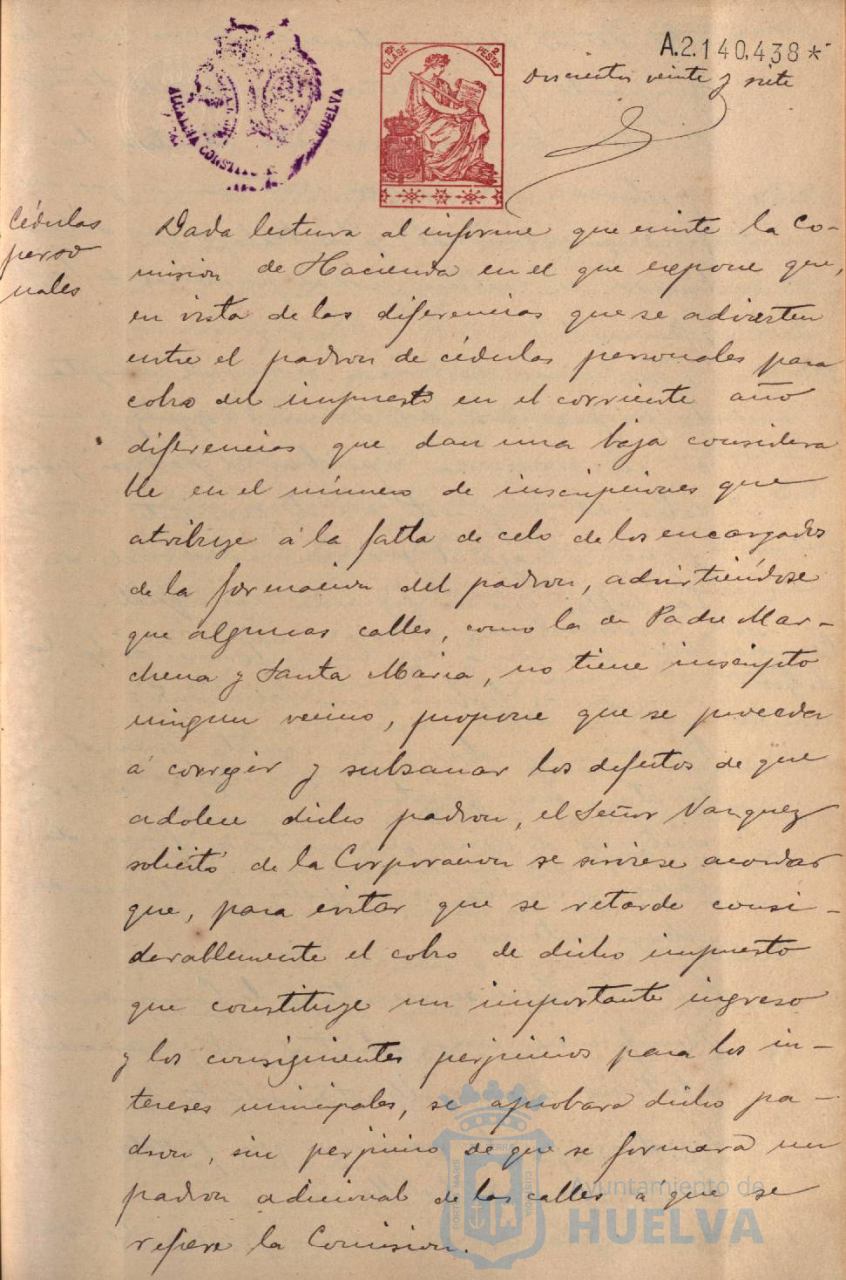 A.2.140.438*
10ª CLASE 2 PESTAS
Doscientos veinte y siete
ALCALDIA CONSTITU HUELVA
Cédulas
perso
nales
Dada lectura al informe que emite la Co-
mision de Hacienda en el que expone que,
en vista de las diferencias que se advierten
entre el padron de cédulas personales para
cobro del impuesto en el corriente año
diferencias que dan una baja considera
ble en el número de inscripciones que
atribuye á la falta de celo de los encargados
de la formacion del padron, advirtiéndose
que algunas calles, como la de Padre Mar-
chena y Santa Maria, no tiene inscripto
ningun vecino, propone que se proceda
á corregir y subsanar los defectos de que
adolece dicho padron, el Señor Vazquez
solicitó de la Corporacion se sirviese acordar
que, para evitar que se retarde consi-
derablemente el cobro de dicho impuesto
que constituye un importante ingreso
y los consiguientes perjuicios para los in-
tereses municipales, se aprobara dicho pa-
dron, sin perjuicio de que se formara un
padron adicional de las calles á que se
refiere la Comision.
Ayuntamiento de
HUELVA